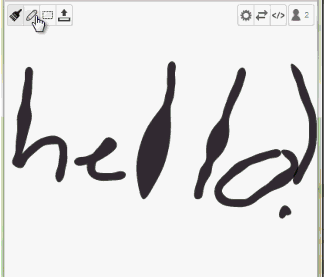 2
hello!